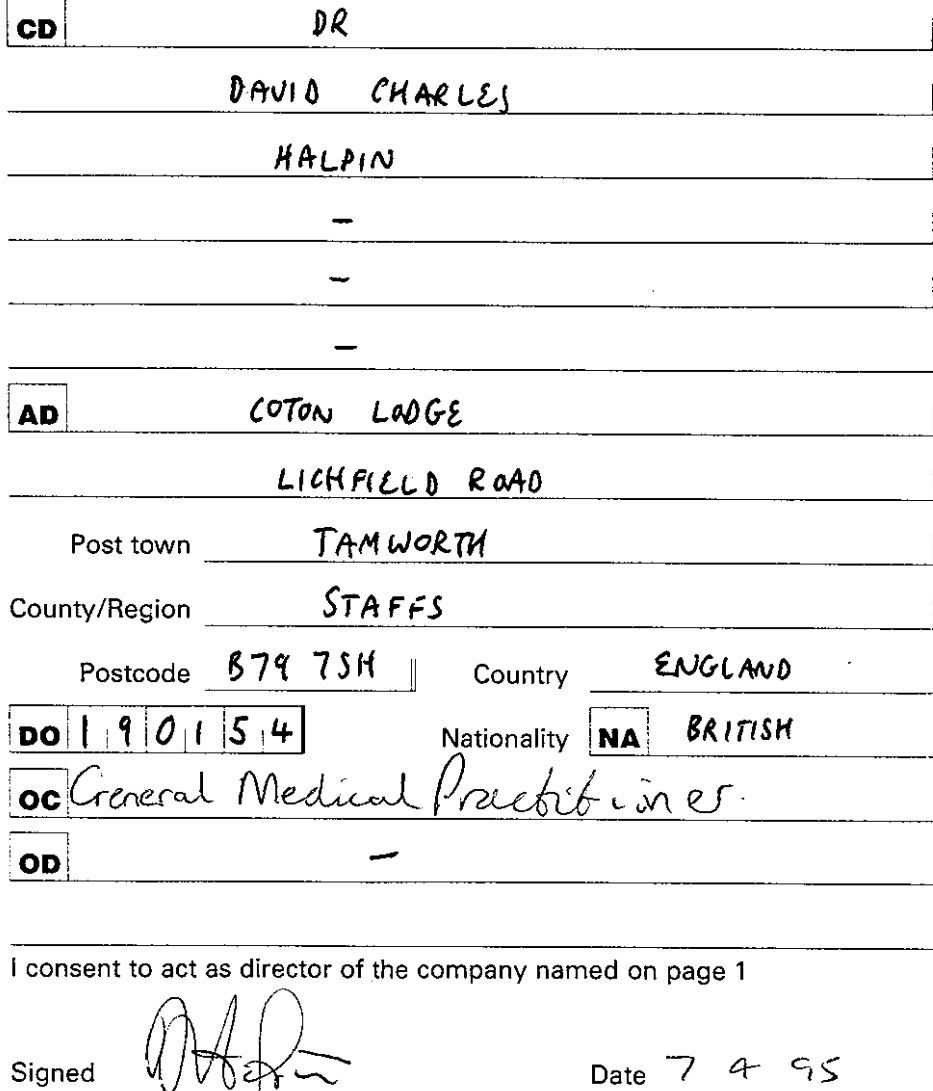 CD DR
DAVID CHARLES
HALPIN
-
-
-
AD COTON LODGE
LICHFIELD ROAD
Post town TAMWORTH
County/Region STAFFS
Postcode B79 7SH Country ENGLAND
DO 190154 Nationality NA BRITISH
OC General Medical Practitioner.
OD -
I consent to act as director of the company named on page 1
Signed Date 7 4 95